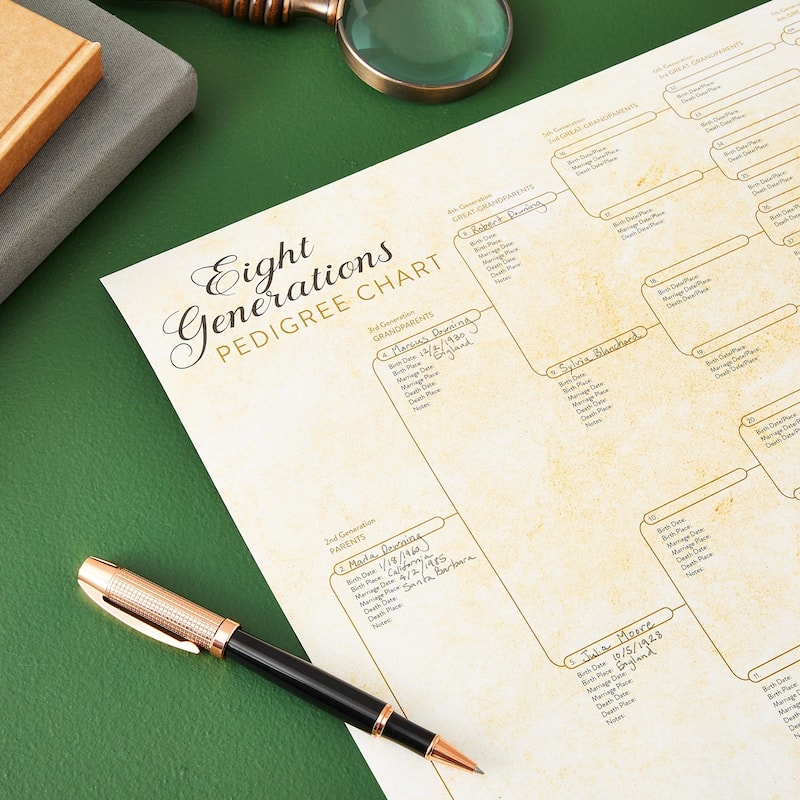 Eight
Generations
PEDIGREE CHART
2nd Generation
PARENTS
2. Maria Downing
Birth Date: 1/18/1960
Birth Place: California
Marriage Date: 4/2/1985
Marriage Place: Santa Barbara
Death Date:
Death Place:
Notes:
3rd Generation
GRANDPARENTS
4. Marcus Downing
Birth Date: 12/2/1930
Birth Place: England
Marriage Date:
Marriage Place:
Death Date:
Death Place:
Notes:
5. Julia Moore
Birth Date: 10/5/1928
Birth Place: England
Marriage Date:
Marriage Place:
Death Date:
Death Place:
Notes:
4th Generation
GREAT GRANDPARENTS
8. Robert Downing
Birth Date:
Birth Place:
Marriage Date:
Marriage Place:
Death Date:
Death Place:
Notes:
9. Sylvia Blanchard
Birth Date:
Birth Place:
Marriage Date:
Marriage Place:
Death Date:
Death Place:
Notes:
10.
Birth Date:
Birth Place:
Marriage Date:
Marriage Place:
Death Date:
Death Place:
Notes:
11.
Birth Date:
Birth Place:
5th Generation
2nd GREAT-GRANDPARENTS
16.
Birth Date/Place:
Marriage Date/Place:
Death Date/Place:
17.
Birth Date/Place:
Marriage Date/Place:
Death Date/Place:
18.
Birth Date/Place:
Marriage Date/Place:
Death Date/Place:
19.
Birth Date/Place:
Marriage Date/Place:
Death Date/Place:
20.
Birth Date/Place:
Marriage Date/Place:
Death Date/Place:
6th Generation
3rd GREAT GRANDPARENTS
32.
Birth Date/Place:
Death Date/Place:
33.
Birth Date/Place:
Death Date/Place:
34.
Birth Date/Place:
Death Date/Place:
35.
Birth Date/Place:
Death Date/Place:
36.
Birth Date/Place:
Death Date/Place:
37.
7th Generation